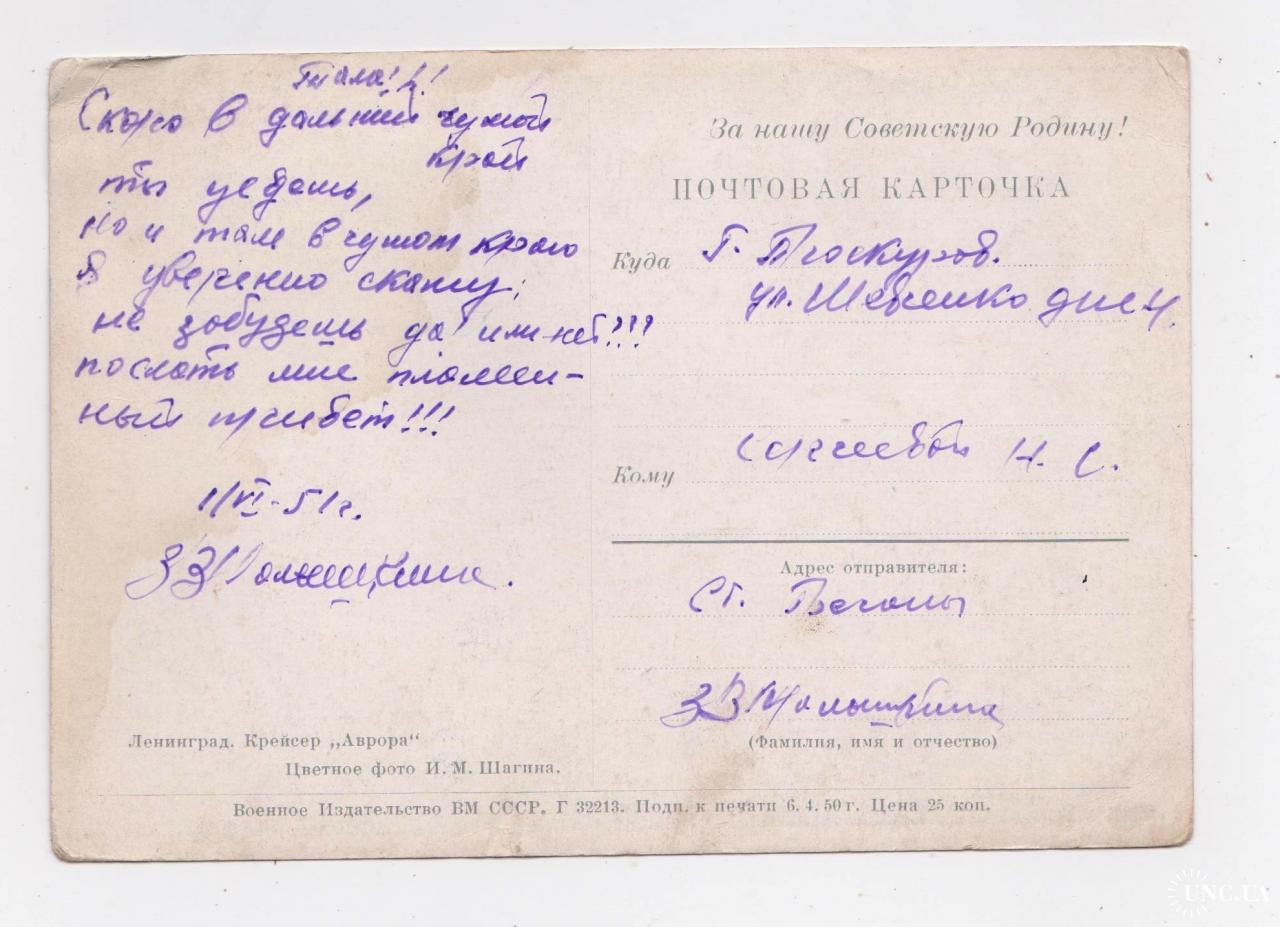 Тала!!!
Скоро в дальний чужой
край
ты уедешь,
но и там в чужом краю
Я уверенно скажу:
не забудешь да или нет???
послать мне пламен-
ный привет!!!
1/VI-51г.
ЗЗ
За нашу Советскую Родину!
ПОЧТОВАЯ КАРТОЧКА
Куда Г. Проскуров.
ул. Шевченко
Кому Н. С.
Адрес отправителя:
Ст.
ЗЗ Малышкина
(Фамилия, имя и отчество)
Ленинград. Крейсер „Аврора“
Цветное фото И. М. Шагина.
Военное Издательство ВМ СССР. Г 32213. Подп. к печати 6. 4. 50 г. Цена 25 коп.
UNC.UA